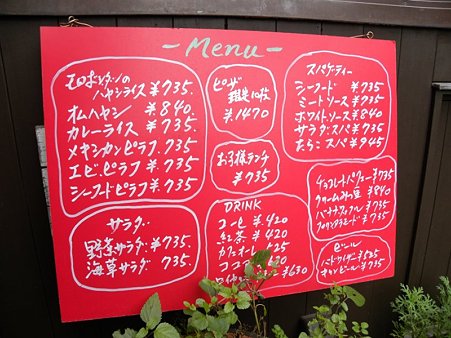 - Menu -
ハヤシライス ¥735.
オムハヤシ ¥840.
カレーライス ¥735.
メキシカンピラフ ¥735.
エビピラフ ¥735.
シーフードピラフ ¥735.
サラダ
野菜サラダ ¥735.
海草サラダ 735.
ピザ
限定10枚
¥1470
お子様ランチ
¥735
DRINK
コーヒー ¥.420
紅茶 ¥420
カフェオーレ 525
ココア
¥630
スパゲーティー
シーフード ¥735
ミートソース ¥735.
ホワイトソース ¥840
サラダスパ ¥735
たらこスパ ¥945
チョコレートパフェ ¥735
クリームみつ豆 ¥840
735
735
ビール
バドワイザー ¥525
ビール ¥735.